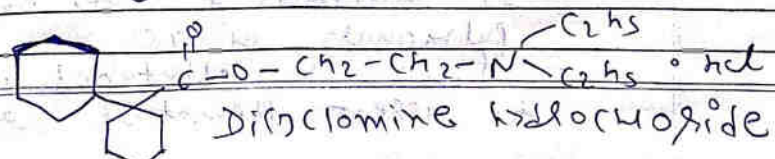 O C2h5
C-O-Ch2-Ch2-N C2h5 · hcl
Dicyclomine hydrochloride